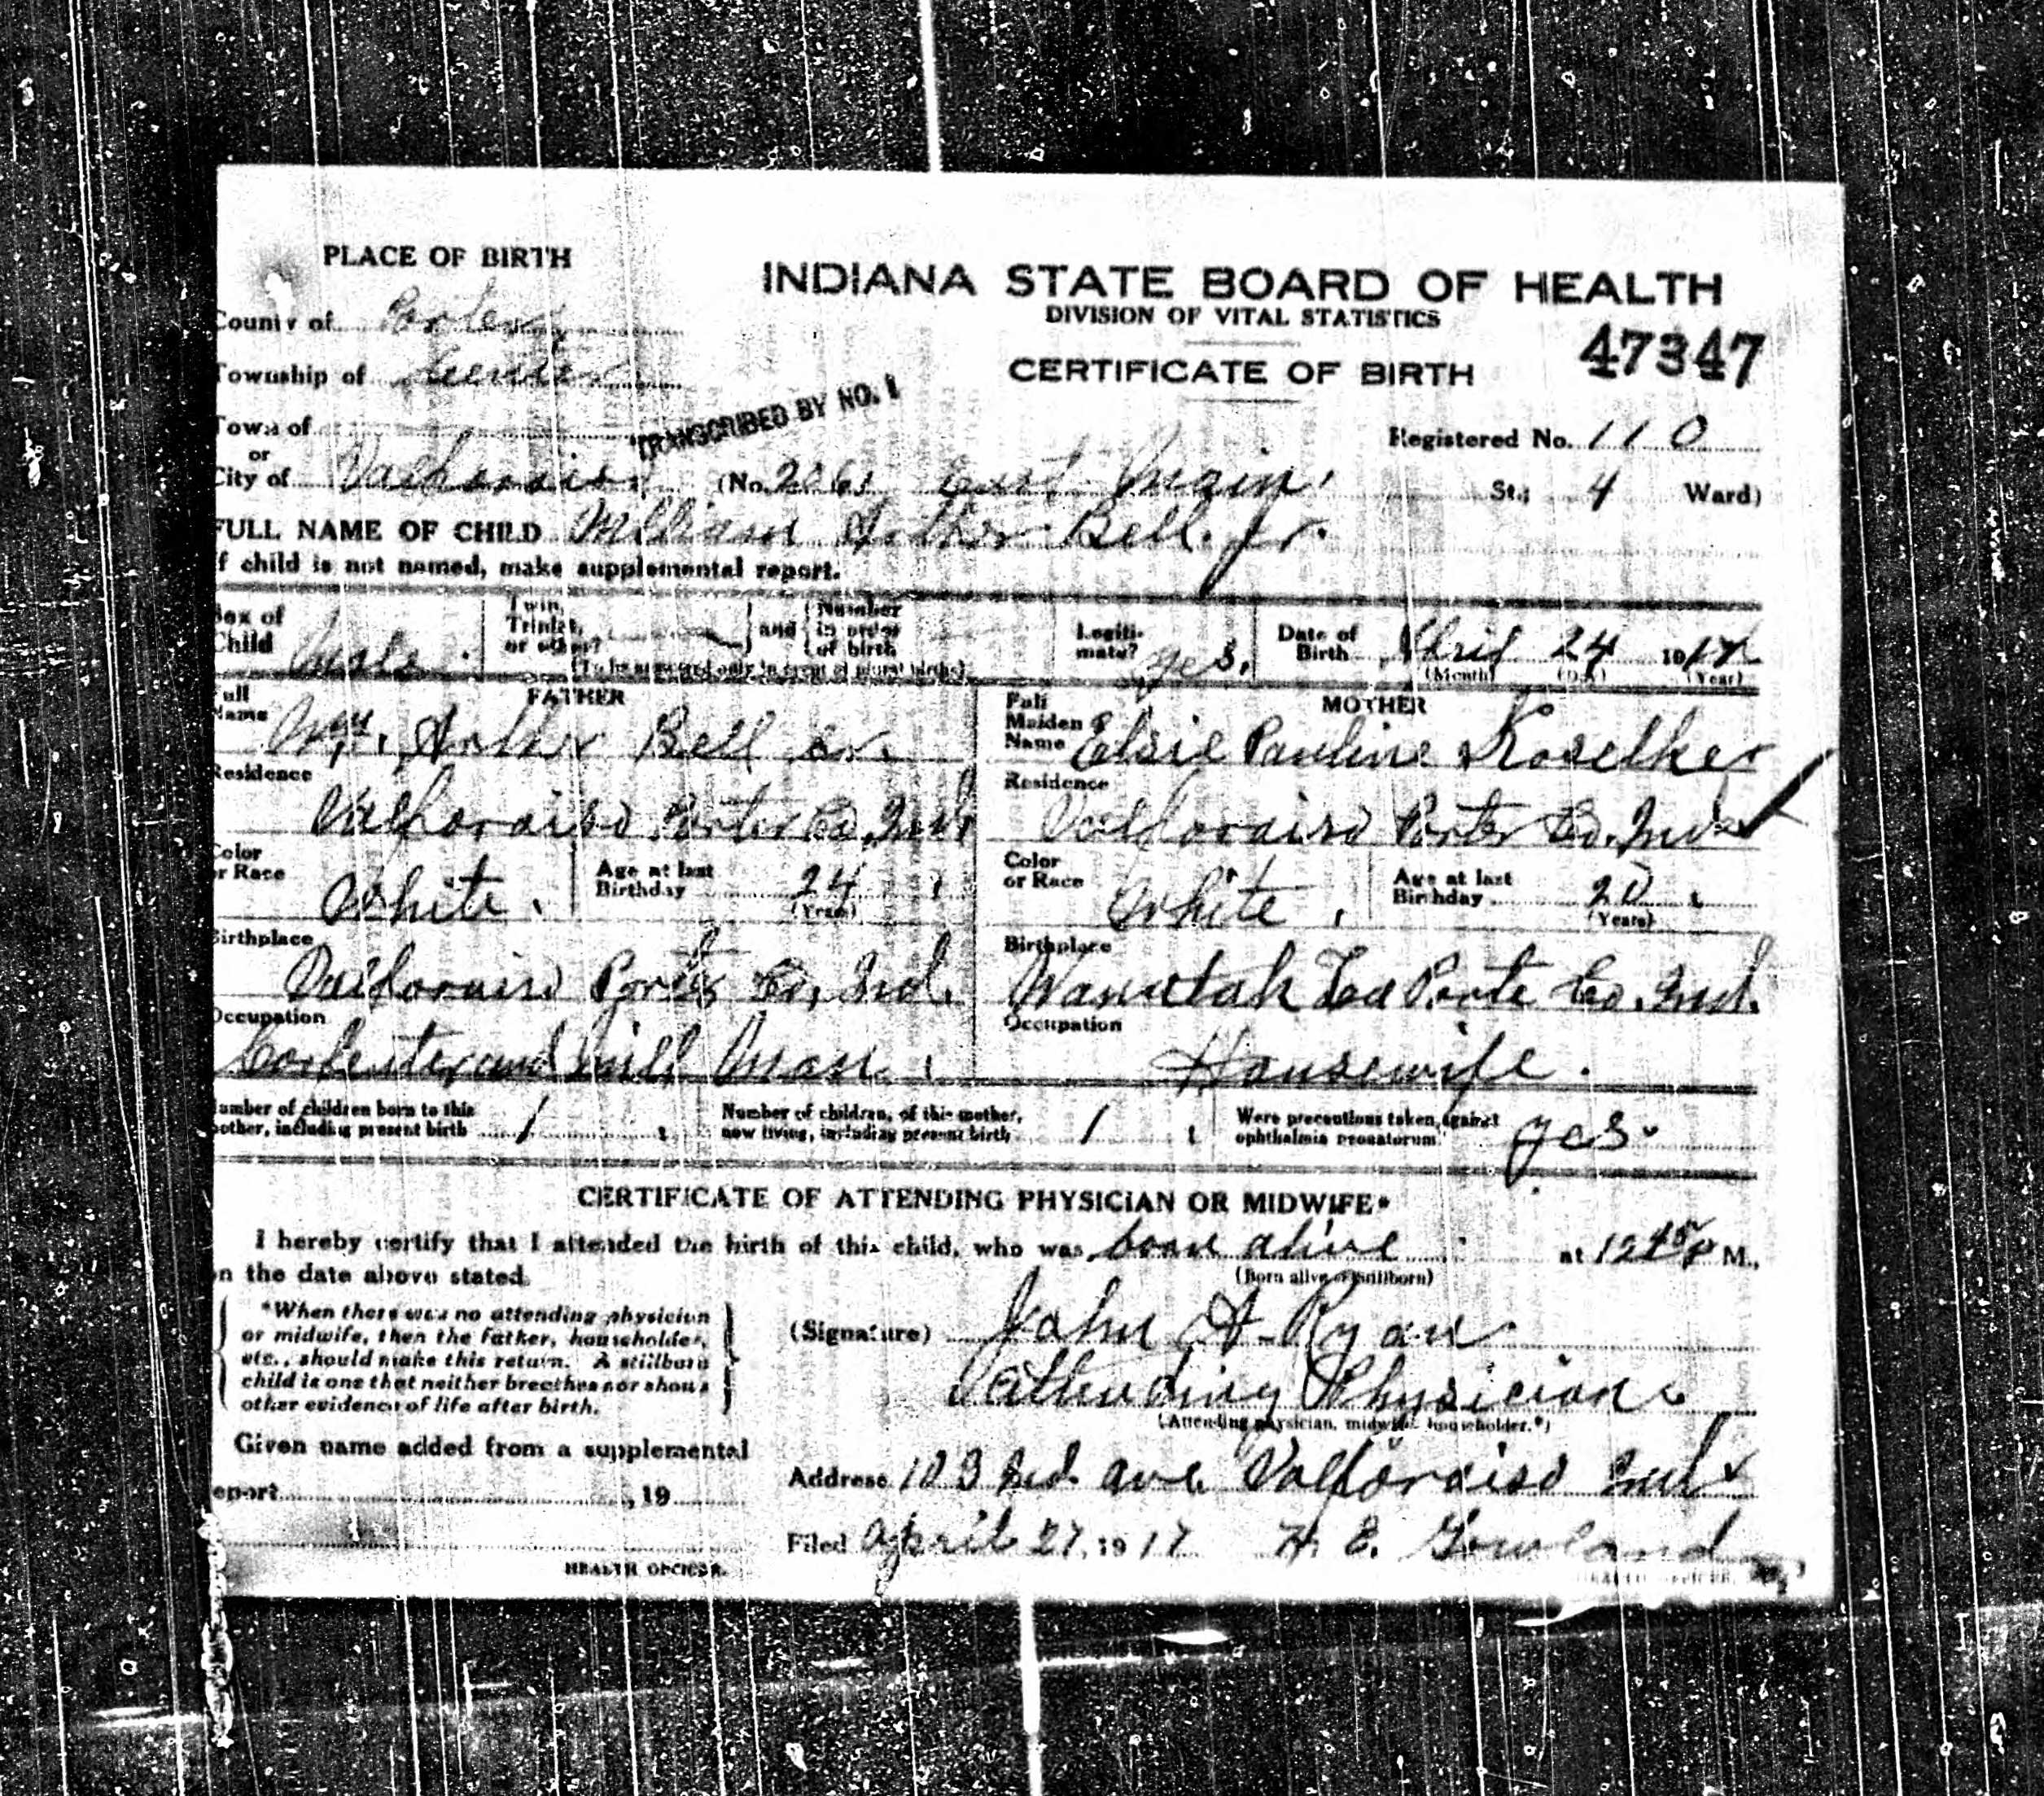 PLACE OF BIRTH
INDIANA STATE BOARD OF HEALTH
DIVISION OF VITAL STATISTICS
County of Porter
47347
Township of Center
CERTIFICATE OF BIRTH
TRANSCRIBED BY NO. 1
Town of
Registered No. 110
or
City of Valparaiso (No. 206 East Main St.; 4 Ward)
FULL NAME OF CHILD William Arthur Bell. Jr.
If child is not named, make supplemental report.
Sex of Child Male.
Twin, Triplet, or other? and Number in order of birth
(To be answered only in event of plural births)
Legitimate? yes.
Date of Birth April 24 1917
(Month) (Day) (Year)
FATHER
Full Name Wm. Arthur Bell Sr.
Residence
Valparaiso Porter Co. Ind.
Color or Race White.
Age at last Birthday 24
(Years)
Birthplace
Valparaiso Porter Co, Ind.
Occupation
Carpenter and Mill Man.
MOTHER
Full Maiden Name Elsie Pauline Koselke
Residence
Valparaiso Porter Co. Ind
Color or Race White.
Age at last Birthday 20
(Years)
Birthplace
Wanatah La Porte Co. Ind.
Occupation
Housewife.
Number of children born to this mother, including present birth 1
Number of children, of this mother, now living, including present birth 1
Were precautions taken against ophthalmia neonatorum yes.
CERTIFICATE OF ATTENDING PHYSICIAN OR MIDWIFE*
I hereby certify that I attended the birth of this child, who was born alive at 12 45 P M.,
on the date above stated.
(Born alive or Stillborn)
*When there was no attending physician
or midwife, then the father, householder,
etc., should make this return. A stillborn
child is one that neither breathes nor shows
other evidence of life after birth.
(Signature) John A Ryan
Attending Physician
(Attending physician, midwife, householder.*)
Given name added from a supplemental
report , 19
Address 103 Ind. ave. Valparaiso Ind
Filed April 27, 1917 H. E. Gowland
HEALTH OFFICER.
HEALTH OFFICER.